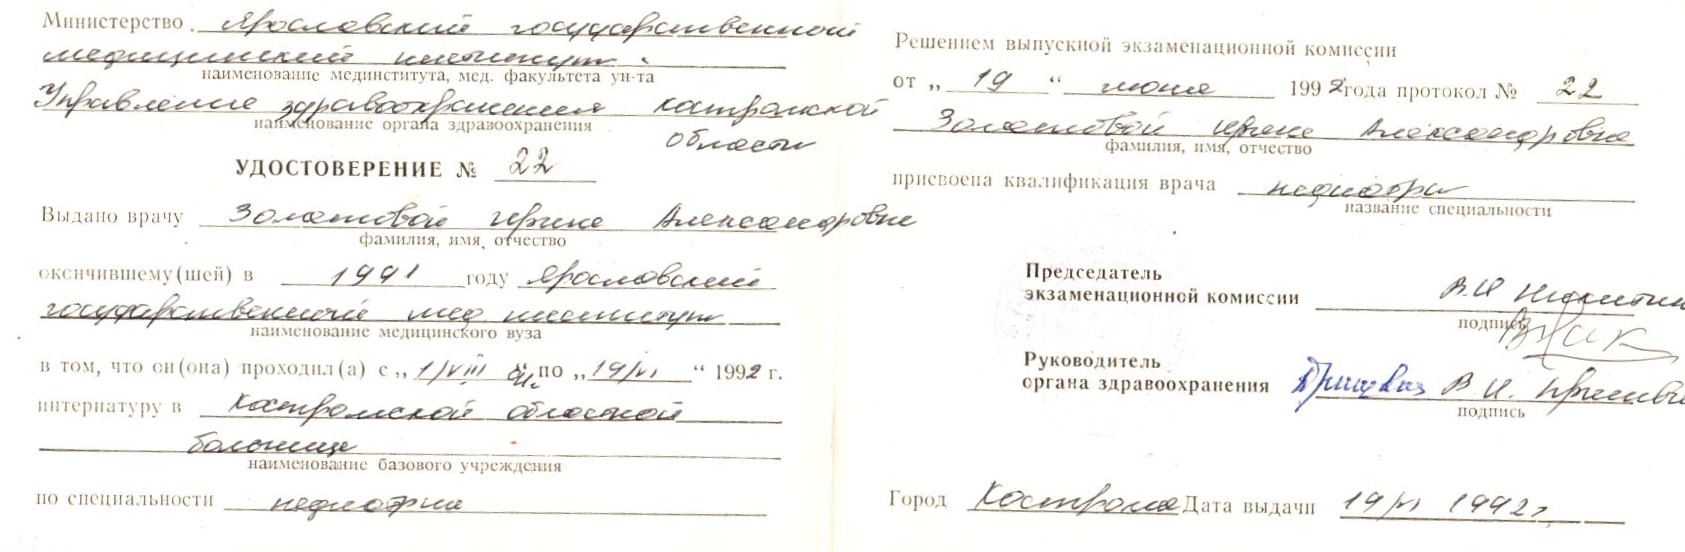 Министерство Ярославский государственной
медицинский институт.
наименование мединститута, мед. факультета ун-та
Управление здравоохранения Костромской
наименование органа здравоохранения
области
УДОСТОВЕРЕНИЕ № 22
Выдано врачу Золотовой Ирине Александровне
фамилия, имя, отчество
окончившему(шей) в 1991 году Ярославский
государственный мед институт
наименование медицинского вуза
в том, что он(она) проходил(а) с „ 1/VIII 91. по „ 19/VI “ 1992 г.
интернатуру в Костромской областной
больнице
наименование базового учреждения
по специальности педиатрия
Решением выпускной экзаменационной комиссии
от „ 19 “ июня 1992 года протокол № 22
Золотовой Ирине Александровне
фамилия, имя, отчество
присвоена квалификация врача педиатра
название специальности
Председатель
экзаменационной комиссии В.И Никитин
подпись
Руководитель
органа здравоохранения В.И.
подпись
Город Кострома Дата выдачи 19/VI 1992г.